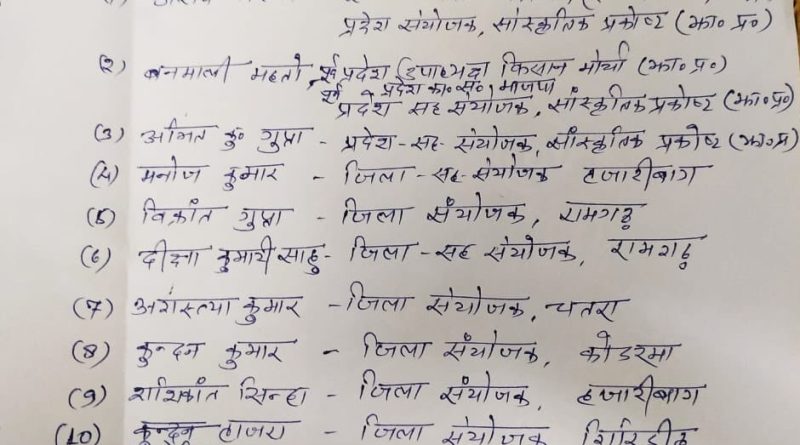 प्रदेश संयोजक, सांस्कृतिक प्रकोष्ठ (झा० प्र०)
(२) बनमाली महतो, पूर्व प्रदेश उपाध्यक्ष किसान मोर्चा (झा० प्र०)
पूर्व प्रदेश का० स०, भाजपा
प्रदेश सह संयोजक, सांस्कृतिक प्रकोष्ठ (झा० प्र०)
(3) अमित कु० गुप्ता - प्रदेश-सह-संयोजक, सांस्कृतिक प्रकोष्ठ (झा० प्र)
(4) मनोज कुमार - जिला-सह-संयोजक हजारीबाग
(5) विक्रांत गुप्ता - जिला संयोजक, रामगढ़
(6) दीक्षा कुमारी साहु - जिला-सह संयोजक, रामगढ़
(7) अगस्त्या कुमार - जिला संयोजक, चतरा
(8) कुन्दन कुमार - जिला संयोजक, कोडरमा
(9) शशिकांत सिन्हा - जिला संयोजक, हजारीबाग
(10) कुन्दन हाजरा - जिला संयोजक गिरिडीह